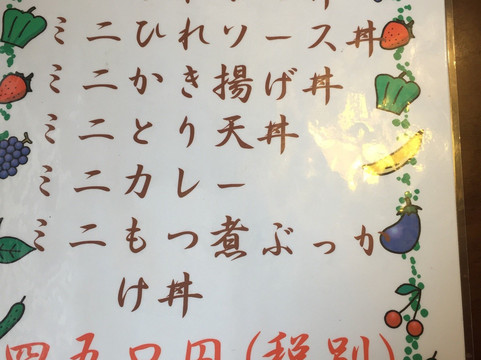 ミニひれソース丼
ミニかき揚げ丼
ミニとり天丼
ミニカレー
ミニもつ煮ぶっか
け丼
四五〇円(税別)